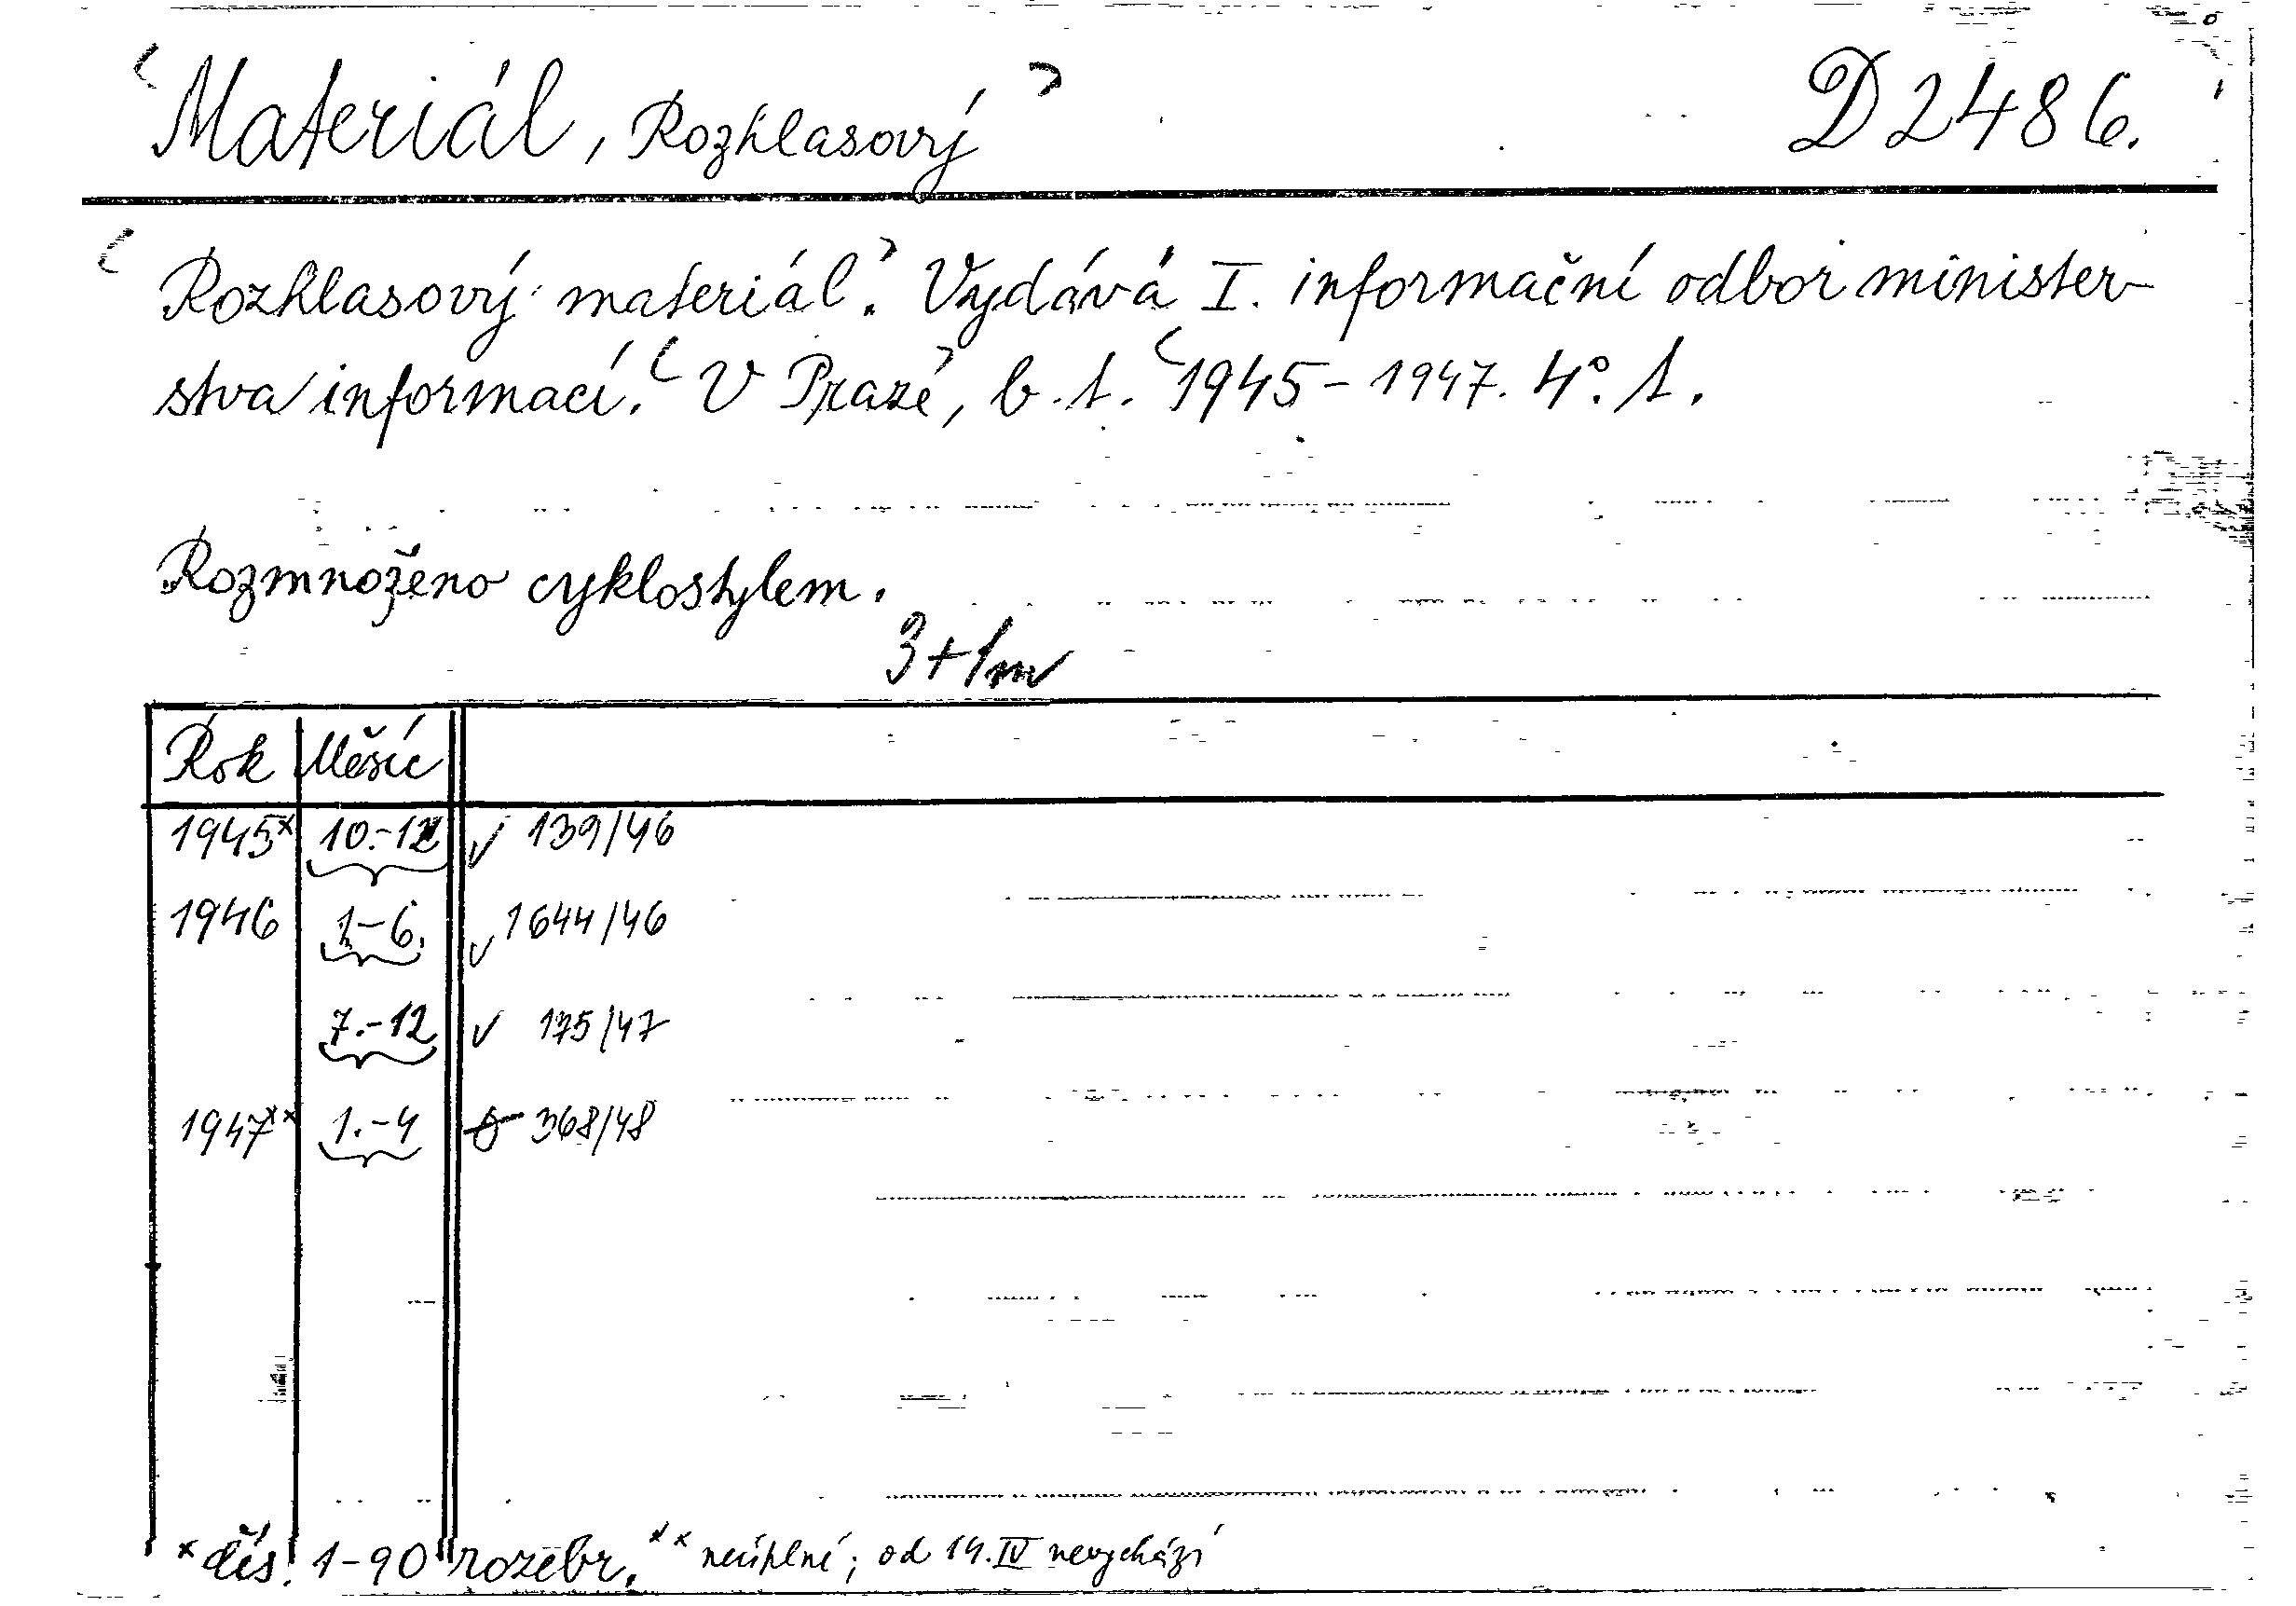 Materiál, Rozhlasový D 2486.
Rozhlasový materiál. Vydává I. informační odbor minister-
stva informací. V Praze, b. t. 1945-1947. 4°. t.
Rozmnoženo cyklostylem.
3+1m
Rok Měsíc
1945x 10.-12 139/46
1946 1-6. 1644/46
7.-12 175/47
1947xx 1.-4 368/48
x čís. 1-90 rozebr. xx neúplné; od 14. IV nevychází